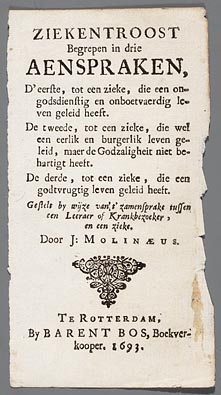 ZIEKENTROOST
Begrepen in drie
AENSPRAKEN,
D'eerste, tot een zieke, die een on-
godsdienstig en onboetvaerdig le-
ven geleid heeft.
De tweede, tot een zieke, die wel
een eerlik en burgerlik leven ge-
leid, maer de Godzaligheit niet be-
hartigt heeft.
De derde, tot een zieke, die een
godtvrugtig leven geleid heeft.
Gestelt by wijze van 't zamensprake tussen
een Leeraer of Krankbezoeker,
en een zieke.
Door J: MOLINÆUS.
TE ROTTERDAM,
By BARENT BOS, Boekver-
kooper. 1693.